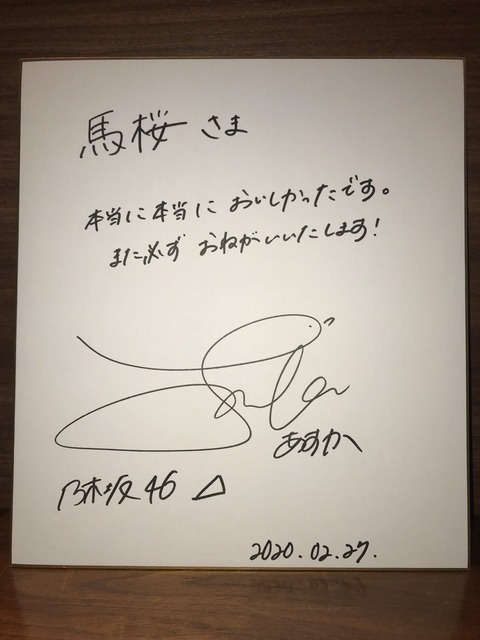 馬桜さま
本当に本当においしかったです。
また必ずおねがいいたします!
あすか
乃木坂46
2020.02.27.